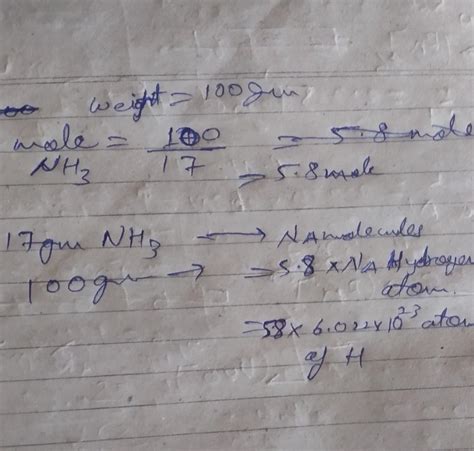 weight = 100gm
mole NH3 = 100/17 = 5.8 mole
= 5.8 mole
17gm NH3 → NA molecules
100gm → = 5.8 x NA Hydrogen atom.
= 58 x 6.022 x 10^23 atom of H